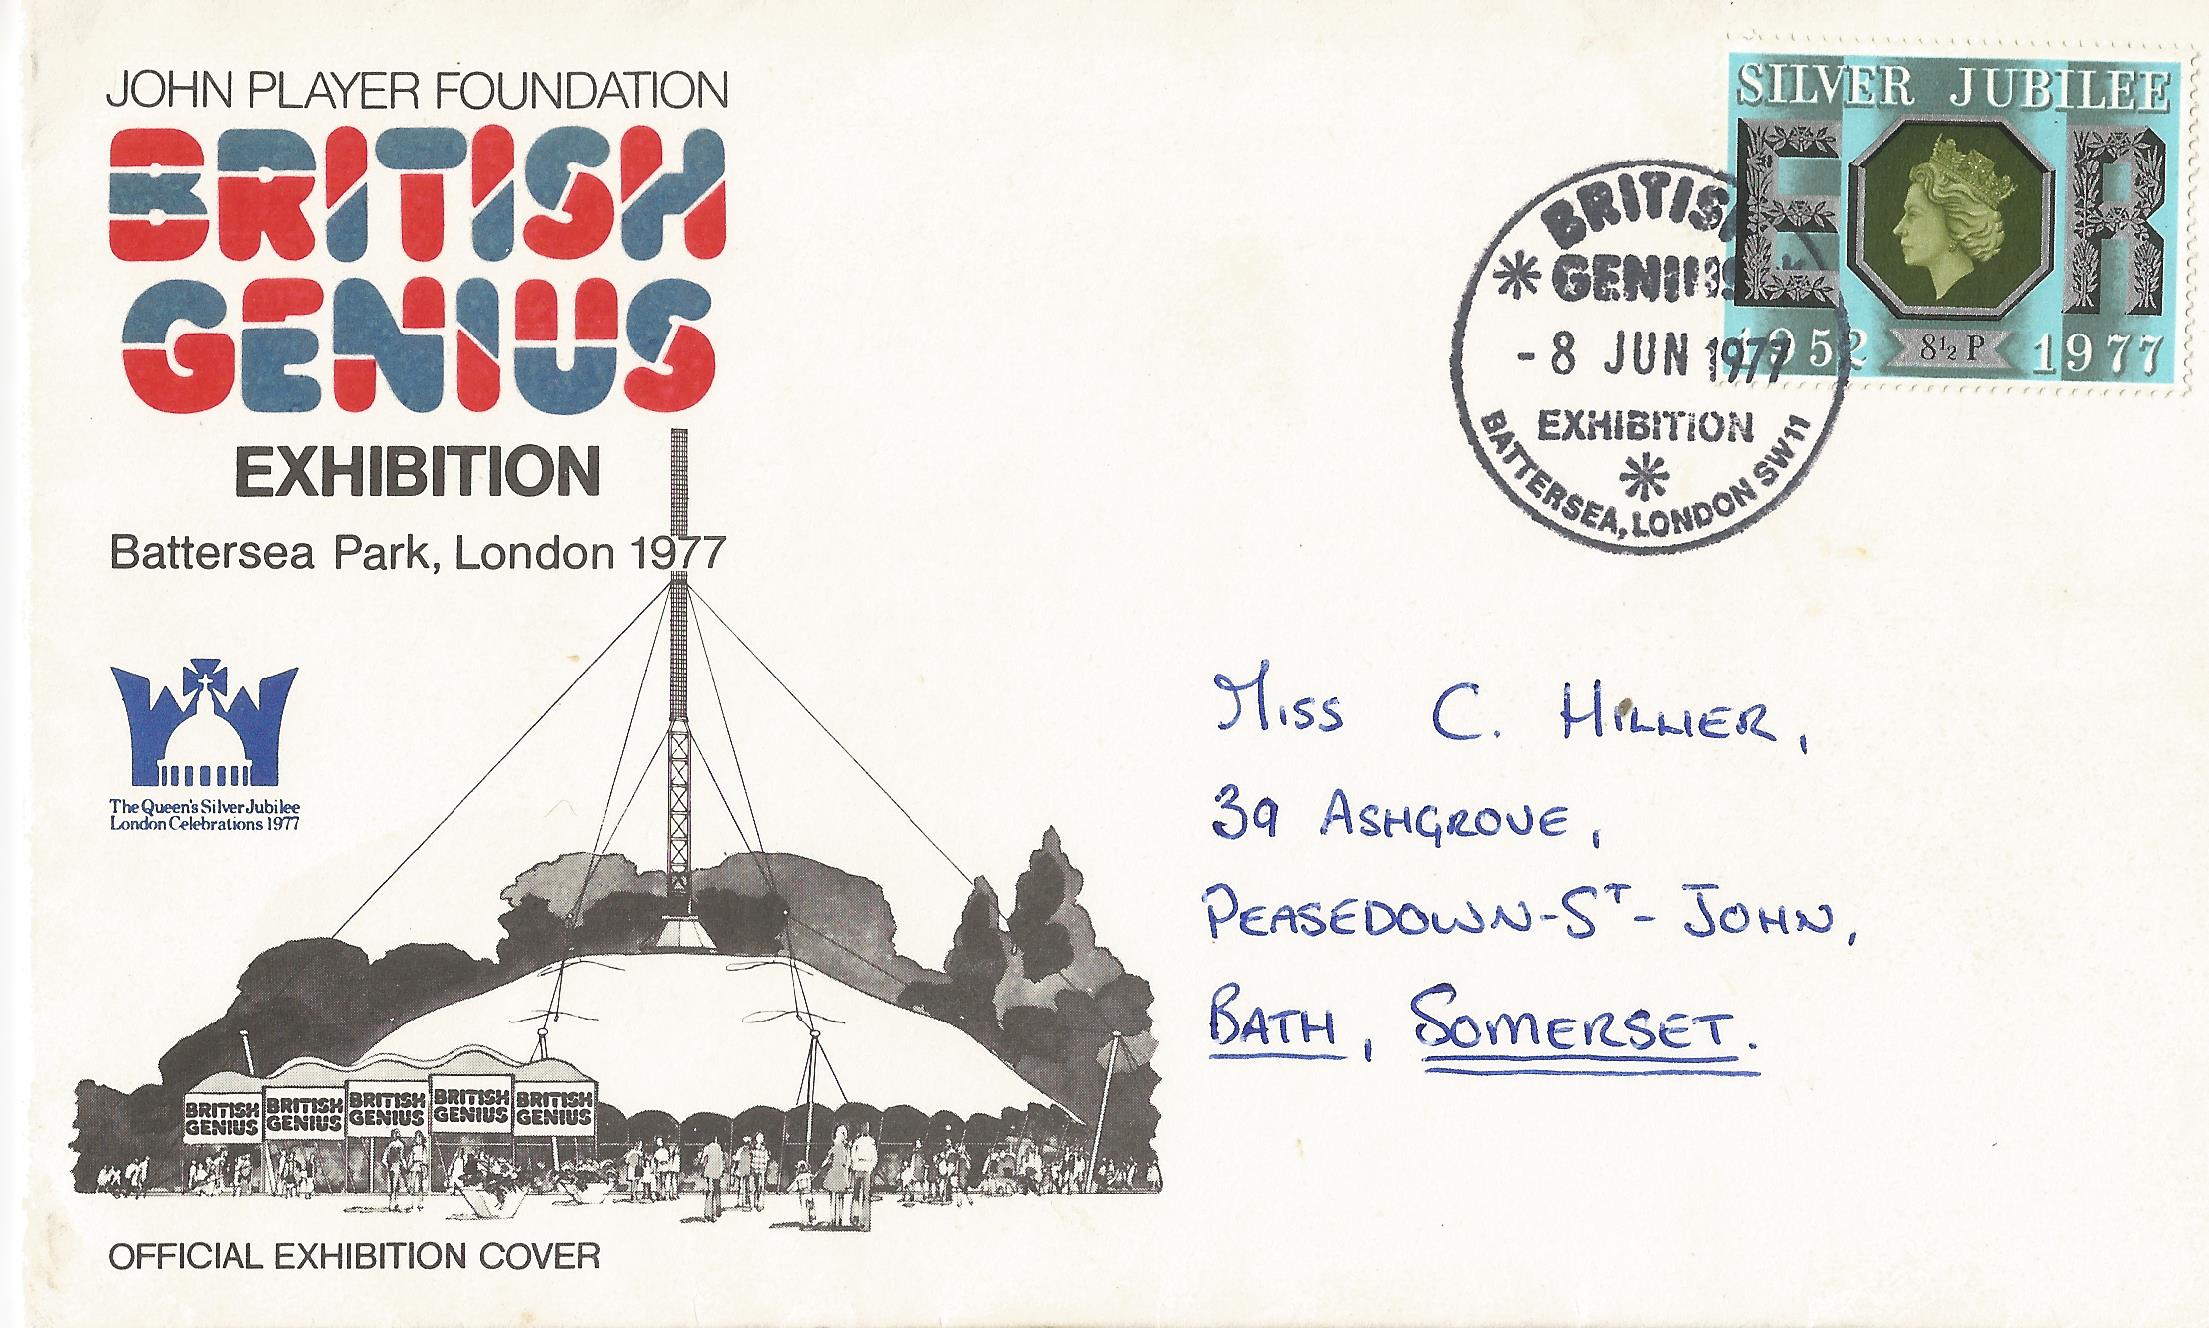 JOHN PLAYER FOUNDATION
BRITISH
GENIUS
EXHIBITION
Battersea Park, London 1977
The Queen's Silver Jubilee
London Celebrations 1977
BRITISH GENIUS
BRITISH GENIUS
BRITISH GENIUS
BRITISH GENIUS
BRITISH GENIUS
OFFICIAL EXHIBITION COVER
SILVER JUBILEE
E R
1952 8½P 1977
BRITISH
GENIUS
-8 JUN 1977
EXHIBITION
BATTERSEA, LONDON SW11
Miss C. Hillier,
39 Ashgrove,
Peasedown-St-John,
Bath, Somerset.